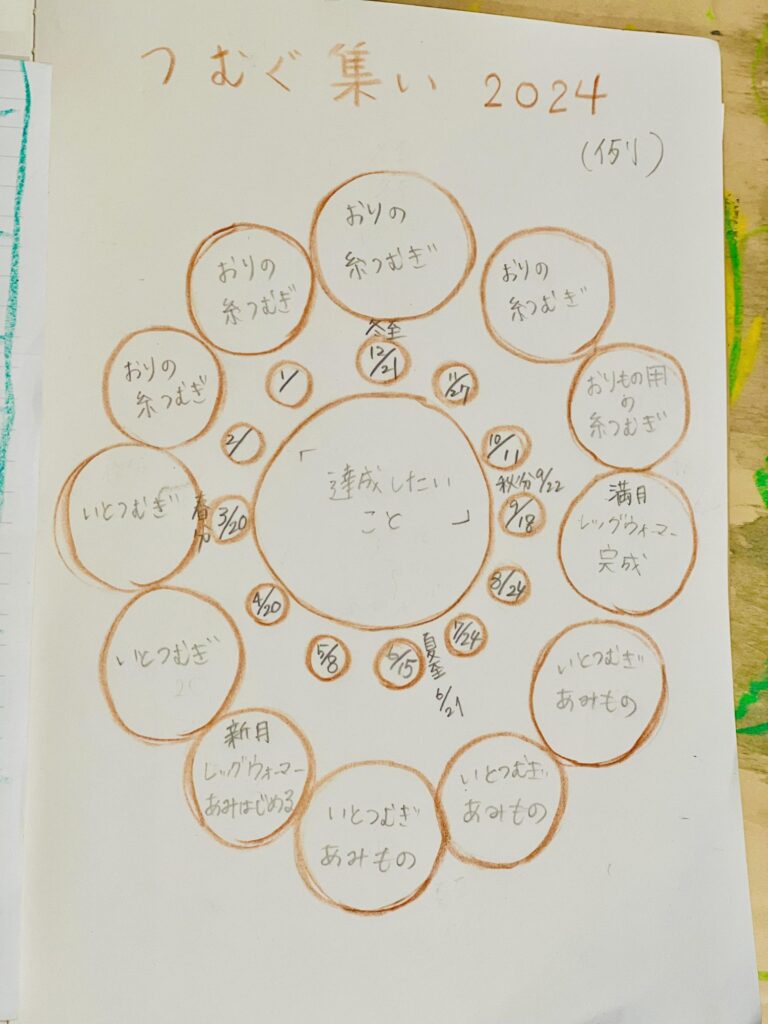 つむぐ集い 2024
(例)
おりの
糸つむぎ
おりの
糸つむぎ
おりもの用
の
糸つむぎ
満月
レッグウォーマー
完成
いとつむぎ
あみもの
いとつむぎ
あみもの
いとつむぎ
あみもの
新月
レッグウォーマー
あみはじめる
いとつむぎ
いとつむぎ
おりの
糸つむぎ
おりの
糸つむぎ
冬至
12/21
11/27
10/11
秋分9/22
9/18
8/24
7/24
夏至
6/21
6/15
5/8
4/20
春分
3/20
2/
1/
「達成したい
こと」